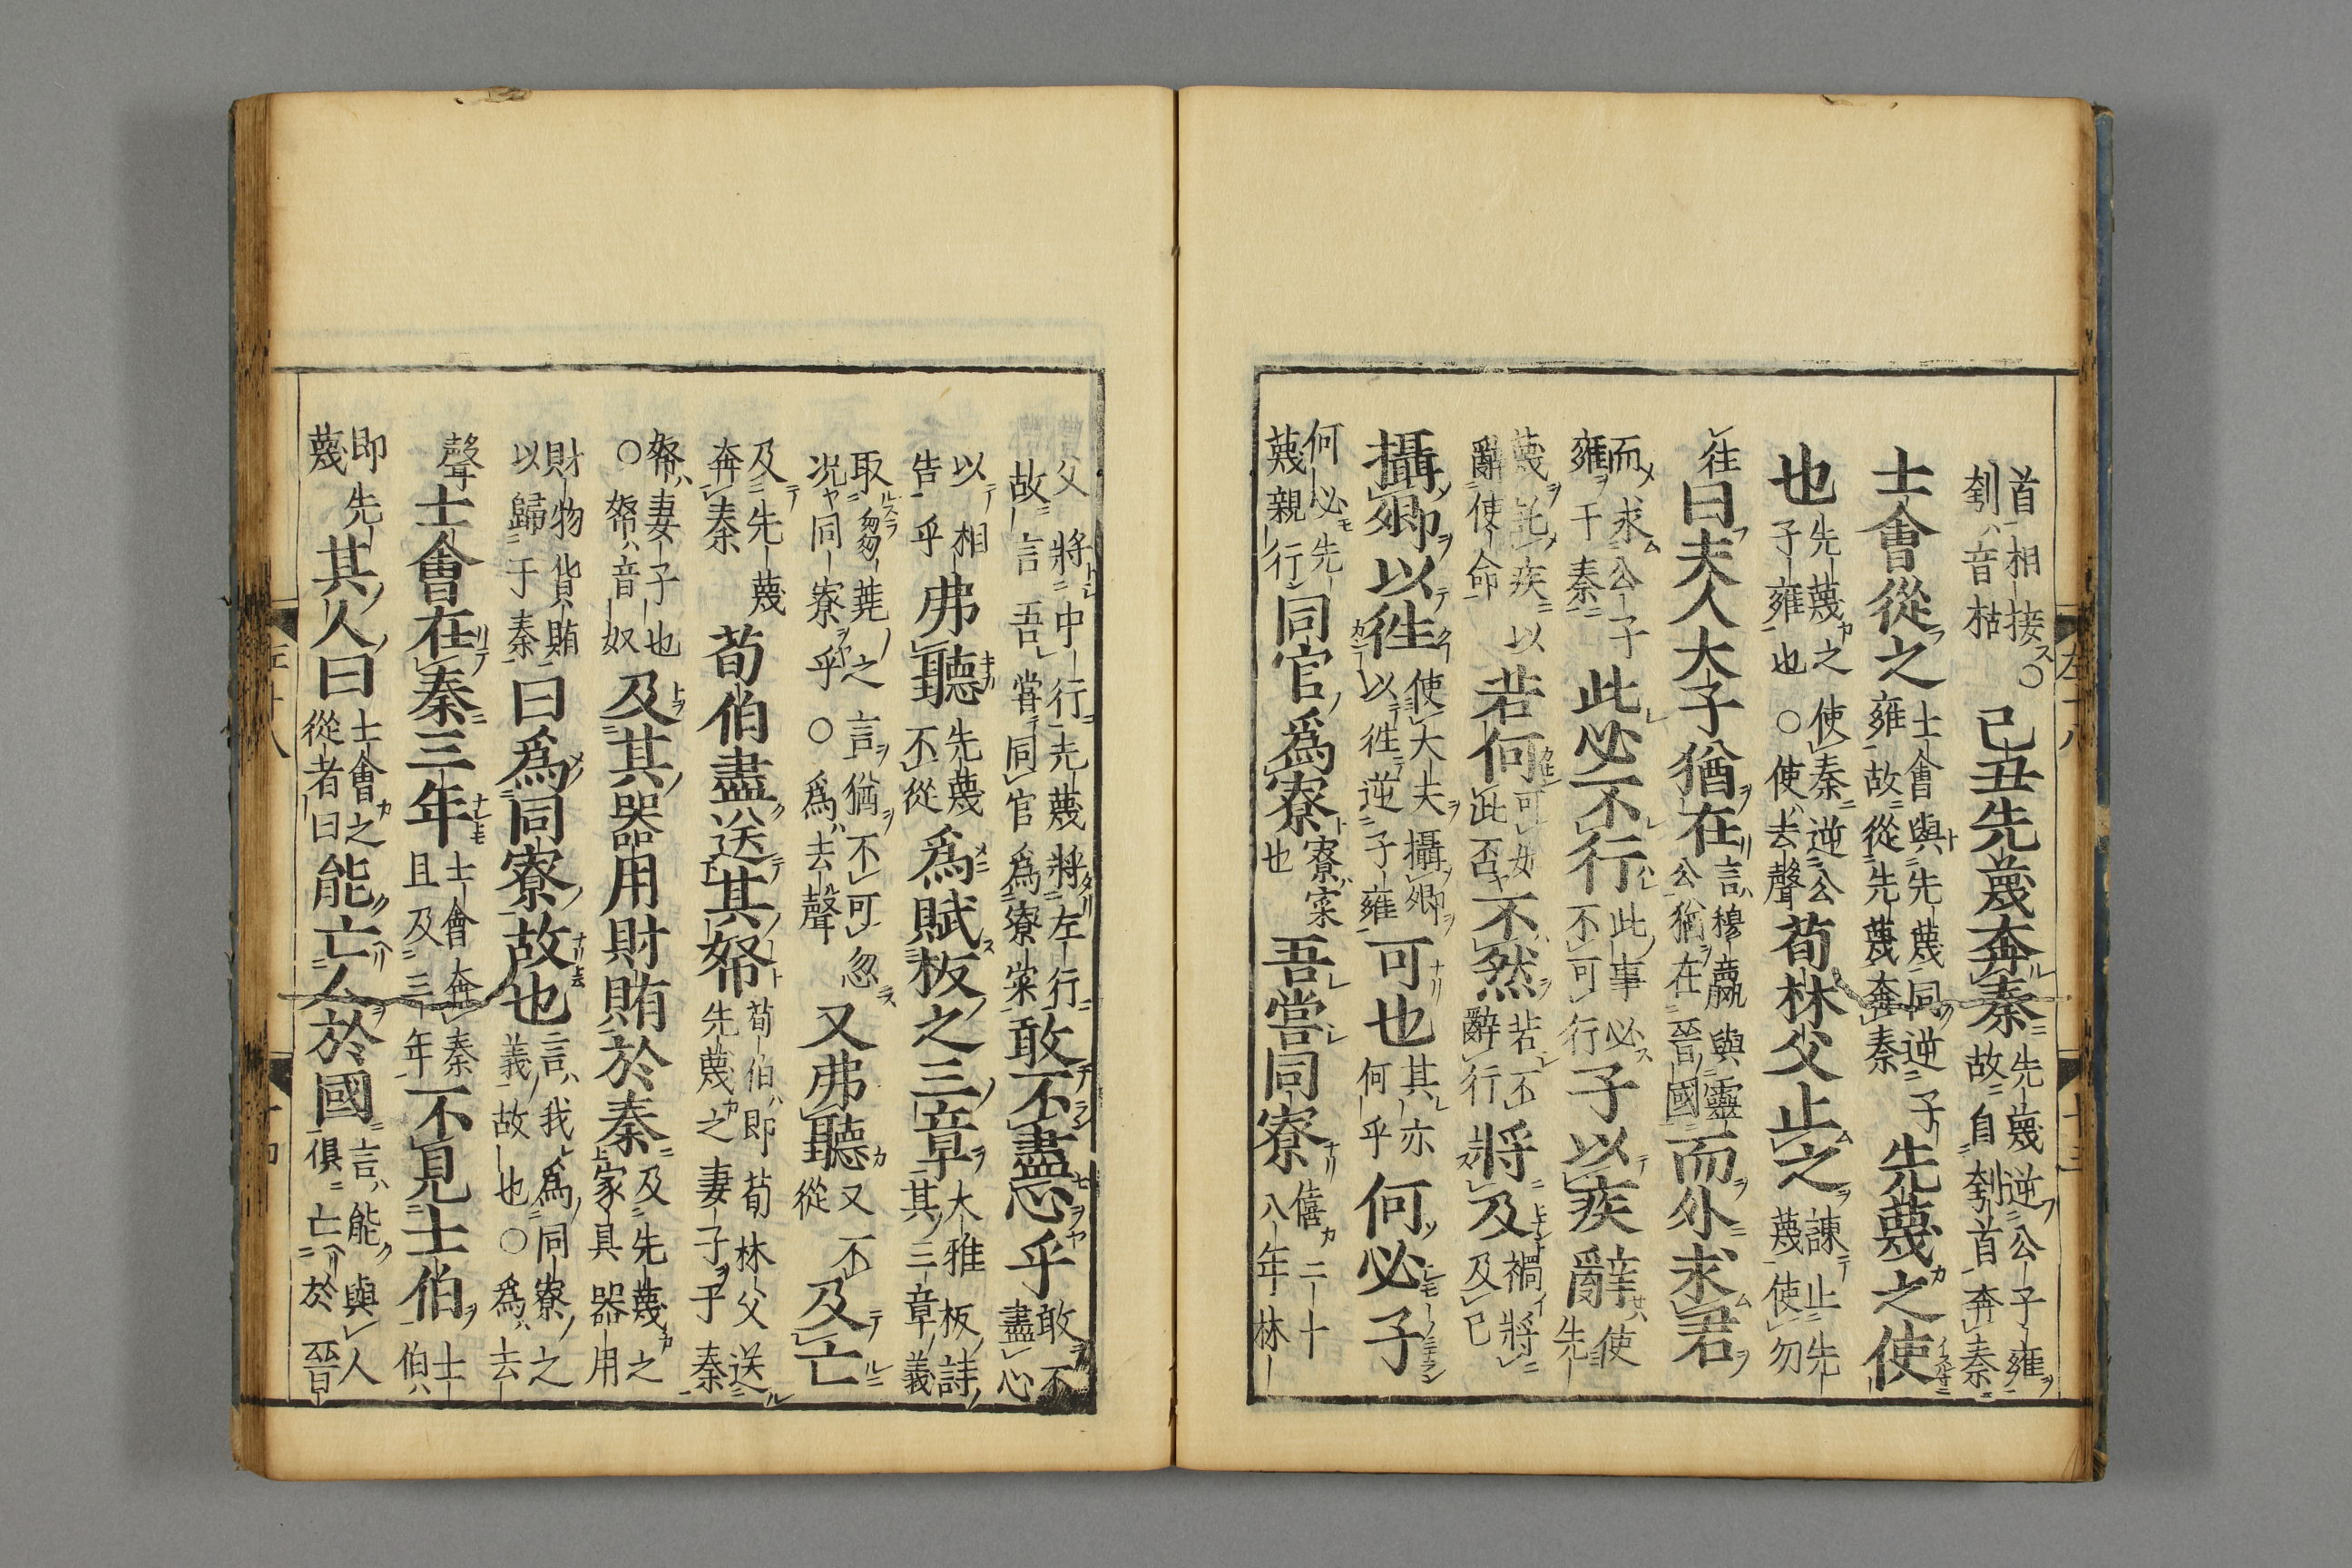 首相接○刳音枯己丑先蔑奔秦先蔑逆公子雍故自刳首奔秦
士會從之士會與先蔑同逆子雍故從先蔑奔秦先蔑之使
也先蔑之使秦逆公子雍也○使去聲荀林父止之諫止先蔑使勿
往曰夫人大子猶在言穆嬴與靈公猶在晉國而外求君
而求公子雍于秦此必不行此事必不可行子以疾辭使先
蔑託疾以辭使命若何可如此否不然若不辭行將及禍將及已
攝卿以往使大夫攝卿以往逆子雍可也其亦何乎何必子
何必先蔑親行同官爲寮寮寀也吾嘗同寮僖二十八年林
父將中行先蔑將左行故言吾嘗同官爲寮寀敢不盡心乎敢不盡心
以相告乎弗聽先蔑不從爲賦板之三章大雅板詩其三章義
取芻蕘之言猶不可忽况同寮乎○爲去聲又弗聽又不從及亡
及先蔑奔秦荀伯盡送其帑荀伯即荀林父送先蔑之妻子于秦
帑妻子也○帑音奴及其器用財賄於秦及先蔑之家具器用
財物貨賄以歸于秦曰爲同寮故也言我爲同寮之義故也○爲去
聲士會在秦三年士會奔秦且及三年不見士伯士伯
即先蔑其人曰士會之從者曰能亡人於國言能與人俱亡於晉